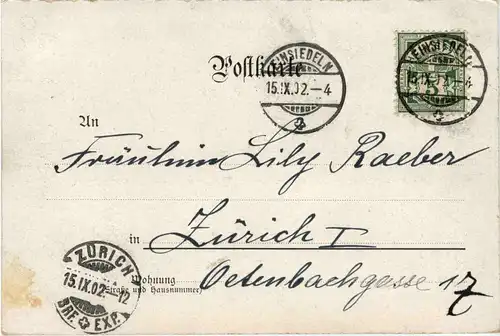 Postkarte
EINSIEDELN
15.IX.02.–4
EINSIEDELN
15.IX.02.–4
5
An
Fräulein Lily Raeber
in Zürich I
ZÜRICH
15.IX.02.–12
BRF. EXP.
Wohnung
(Straße und Hausnummer)
Oetenbachgasse 17